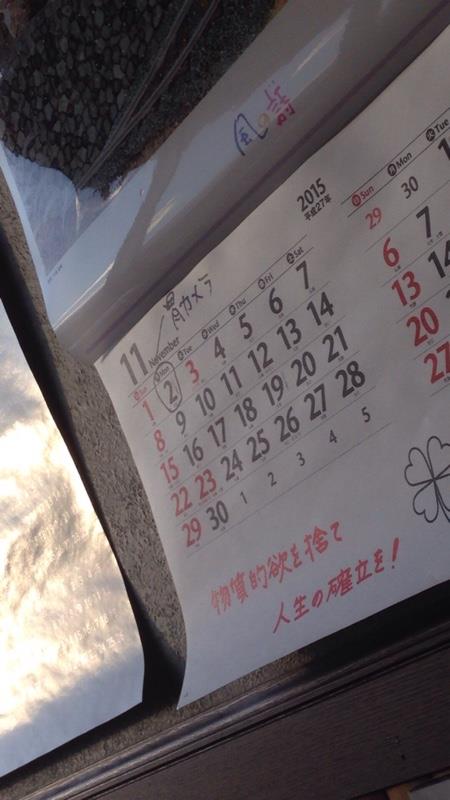 風の詩
2015
平成27年
11 November
胃カメラ
Sun Mon Tue Wed Thu Fri Sat
1 2 3 4 5 6 7
8 9 10 11 12 13 14
15 16 17 18 19 20 21
22 23 24 25 26 27 28
29 30 1 2 3 4 5
物質的欲を捨て
人生の確立を!
日Sun 月Mon 火Tue
29 30 1
6 7
13 14
20 21
27